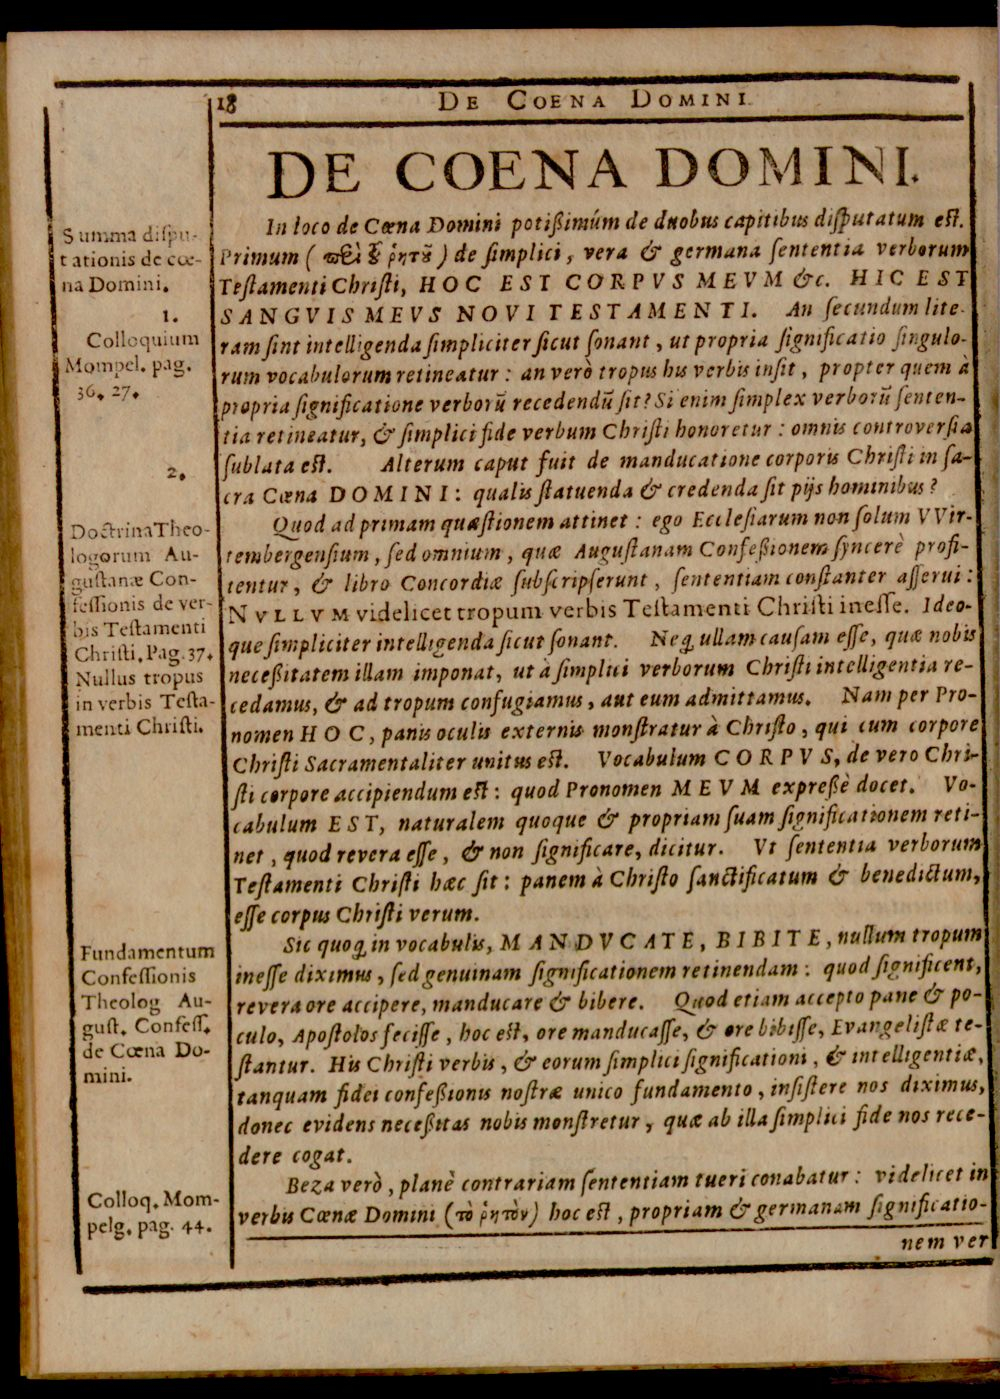 18
DE COENA DOMINI.
DE COENA DOMINI.
In loco de Cœna Domini potißimúm de duobus capitibus disputatum est.
Primum (περὶ τ͂ ῥητοῦ) de simplici, vera & germana sententia verborum
Testamenti Christi, HOC EST CORPVS MEVM &c. HIC EST
SANGVIS MEVS NOVI TESTAMENTI. An secundum lite-
ram sint intelligenda simpliciter sicut sonant, ut propria significatio singulo-
rum vocabulorum retineatur: an verò tropus his verbis insit, propter quem à
propria significatione verborũ recedendũ sit? Si enim simplex verborũ senten-
tia retineatur, & simplici fide verbum Christi honoretur: omnis controversia
sublata est. Alterum caput fuit de manducatione corporis Christi in sa-
cra Cœna DOMINI: qualis statuenda & credenda sit pijs hominibus?
Quod ad primam quæstionem attinet: ego Ecclesiarum non solum VVir-
tembergensium, sed omnium, quæ Augustanam Confeßionem syncerè profi-
tentur, & libro Concordiæ subscripserunt, sententiam constanter asserui:
NVLLVM videlicet tropum verbis Testamenti Christi inesse. Ideo-
que simpliciter intelligenda sicut sonant. Neq; ullam causam esse, quæ nobis
neceßitatem illam imponat, ut à simplici verborum Christi intelligentia re-
cedamus, & ad tropum confugiamus, aut eum admittamus. Nam per Pro-
nomen HOC, panis oculis externis monstratur à Christo, qui cum corpore
Christi Sacramentaliter unitus est. Vocabulum CORPVS, de vero Chri-
sti corpore accipiendum est: quod Pronomen MEVM expreßè docet. Vo-
cabulum EST, naturalem quoque & propriam suam significationem reti-
net, quod revera esse, & non significare, dicitur. Vt sententia verborum
Testamenti Christi hæc sit: panem à Christo sanctificatum & benedictum,
esse corpus Christi verum.
Sic quoq; in vocabulis, MANDVCATE, BIBITE, nullum tropum
inesse diximus, sed genuinam significationem retinendam: quod significent,
revera ore accipere, manducare & bibere. Quod etiam accepto pane & po-
culo, Apostolos fecisse, hoc est, ore manducasse, & ore bibisse, Evangelistæ te-
stantur. His Christi verbis, & eorum simplici significationi, & intelligentiæ,
tanquam fidei confeßionis nostræ unico fundamento, insistere nos diximus,
donec evidens neceßitas nobis monstretur, quæ ab illa simplici fide nos rece-
dere cogat.
Beza verò, planè contrariam sententiam tueri conabatur: videlicet in
verbis Cœnæ Domini (τὸ ῥητὸν) hoc est, propriam & germanam significatio-
nem ver
Summa dispu-
tationis de cœ-
na Domini.
1.
Colloquium
Mompel. pag.
36. 27.
2.
Doctrina Theo-
logorum Au-
gustanæ Con-
fessionis de ver-
bis Testamenti
Christi. Pag. 37.
Nullus tropus
in verbis Testa-
menti Christi.
Fundamentum
Confessionis
Theolog Au-
gust. Confess.
de Cœna Do-
mini.
Colloq. Mom-
pelg. pag. 44.